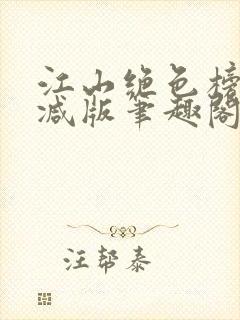 江山绝色榜
减版笔趣阁
汪帮泰